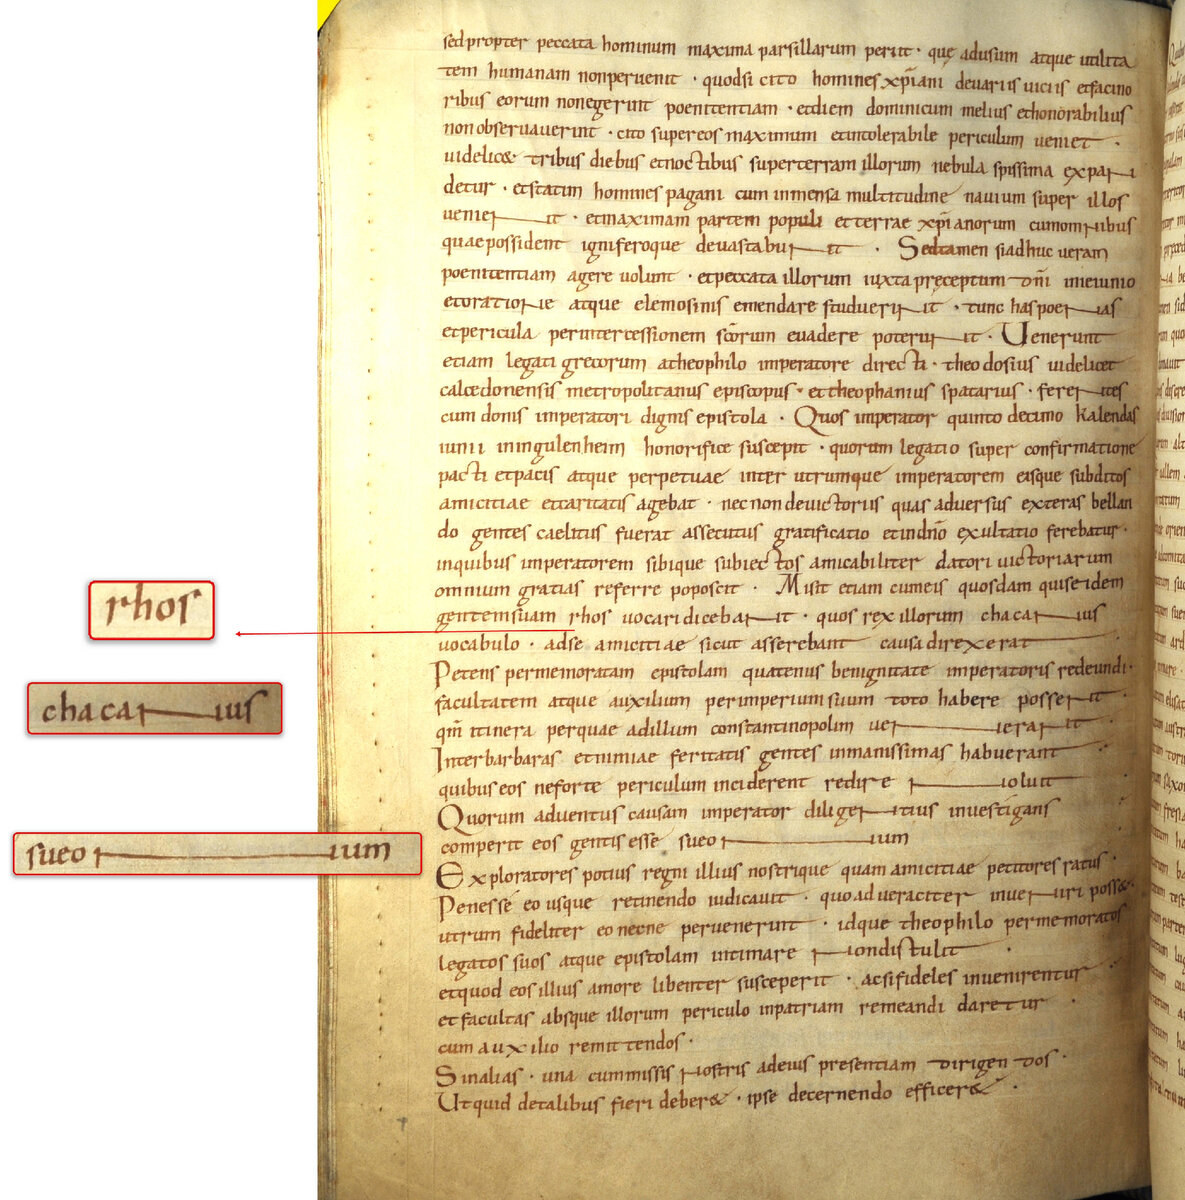 sed propter peccata hominum maxima pars illarum periit · que adusum atque utilita
tem humanam nonpervenit · quodsi cito homines xpiani devariis viciis etfacino
ribus eorum nonegerint poenitentiam · etdiem dominicum melius ethonorabilius
nonobservaverint · cito supereos maximum etintolerabile periculum veniet ·
videlic& tribus diebus etnoctibus superterram illorum nebula spissima expan
detur · etstatim homines pagani cum inmensa multitudine navium super illos
venient · etmaximam partem populi etterrae xpianorum cumomnibus
quaepossident igniferoque devastabunt · Sedtamen siadhuc veram
poenitentiam agere volunt · etpeccata illorum iuxta preceptum dni inieiunio
etoratione atque elemosinis emendare studuerint · tunc haspoenas
etpericula perintercessionem scorum evadere poterunt · Venerunt
etiam legati grecorum atheophilo imperatore directi · theodosius videlicet
calcedonensis metropolitanus episcopus · ettheophanius spatarius · ferentes
cum donis imperatori dignis epistola · Quos imperator quinto decimo kalendas
iunii iningulenheim honorifice suscepit · quorum legatio super confirmatione
pacti etpacis atque perpetuae inter utrumque imperatorem eisque subditos
amicitiae etcaritatis agebat · necnon devictoriis quas adversus exteras bellan
do gentes caelitus fuerat assecutus gratificatio etindno exultatio ferebatur ·
inquibus imperatorem sibique subiectos amicabiliter datori victoriarum
omnium gratias referre poposcit · Misit etiam cumeis quosdam quiseidem
gentemsuam rhos vocaridicebant · quos rex illorum chacanius
vocabulo · adse amicitiae sicut asserebant causa direxerat
Petens permemoratam epistolam quatenus benignitate imperatoris redeundi ·
facultatem atque auxilium perimperium suum toto habere possent ·
qm itinera perquae adillum constantinopolim venerant ·
Interbarbaras etnimiae feritatis gentes inmanissimas habuerant
quibuseos neforte periculum inciderent redire noluit
Quorum adventus causam imperator diligentius investigans
comperit eos gentis esse sueonum
Exploratores potius regni illius nostrique quam amicitiae petitores ratus ·
Penesse eo usque retinendo iudicavit · quoad veraciter inveniri poss& ·
utrum fideliter eo necne pervenerint · idque theophilo permemoratos
legatos suos atque epistolam intimare nondistulit ·
etquod eos illius amore libenter susceperit · acsifideles invenirentur
etfacultas absque illorum periculo inpatriam remeandi daretur ·
cum auxilio remittendos ·
Sinalias · una cummissis nostris adeius presentiam dirigendos ·
Utquid detalibus fieri deber& · ipse decernendo efficer& ·
rhos
chacanius
sueonum